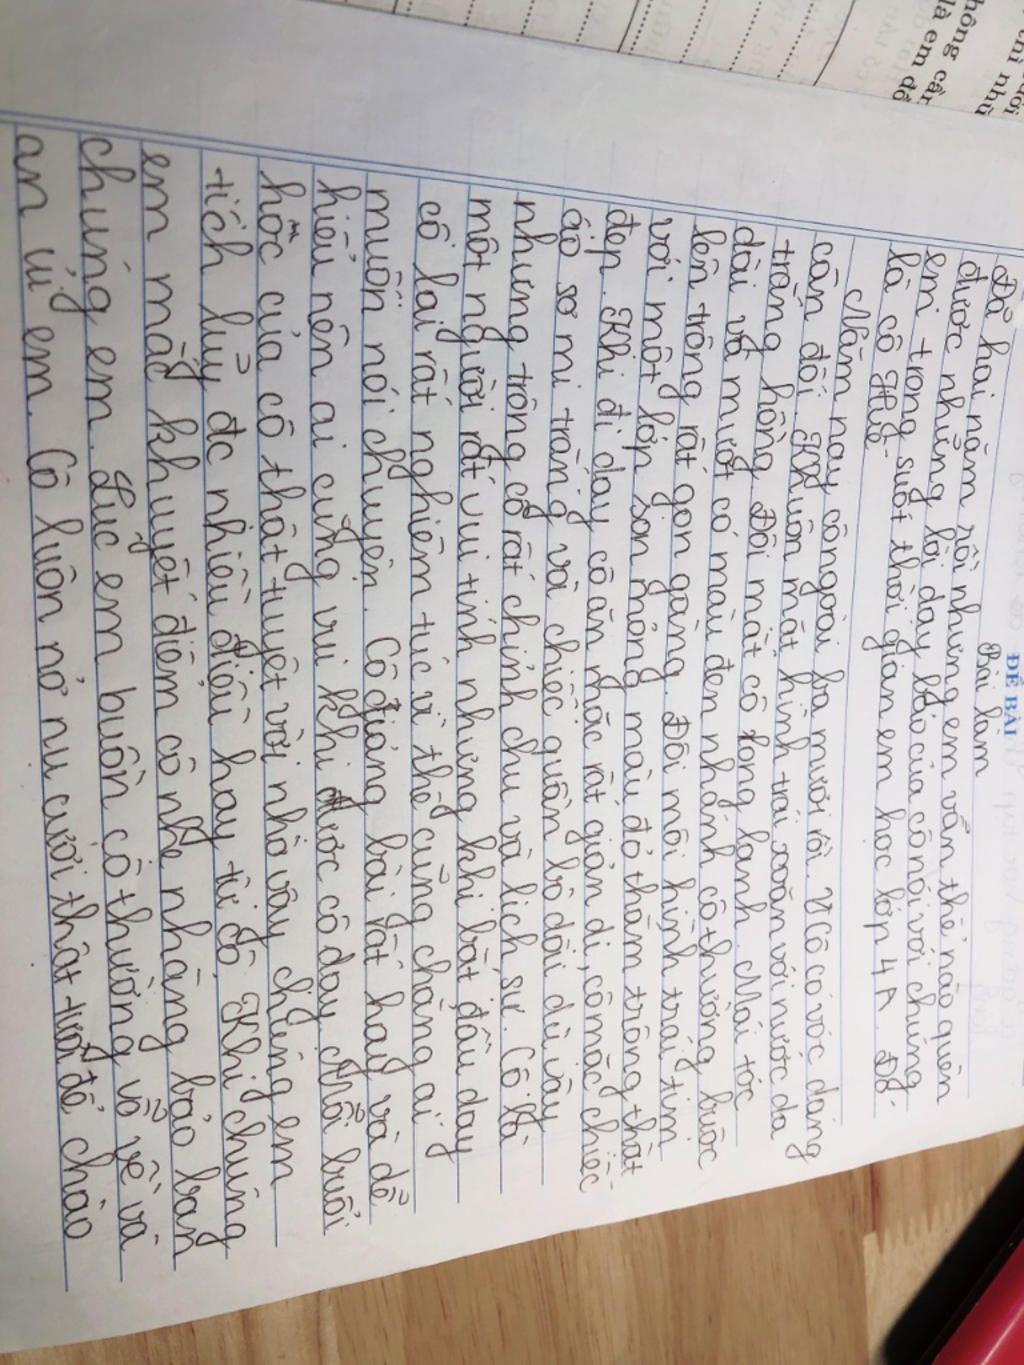 thì nhữ
không cần
là em đồ
ĐỀ BÀI
Bài làm
Đã hai năm rồi nhưng em vẫn thể nào quên
được những lời dạy bảo của cô nói với chúng
em trong suốt thời gian em học lớp 4A. Đó
là cô Huế
Năm nay cô ngoài ba mươi rồi. Cô có vóc dáng
cân đối. Khuôn mặt hình trái xoăn với nước da
trắng hồng. Đôi mắt cô long lanh. Mái tóc
dài và mượt có màu đen nhánh cô thường buộc
lên trông rất gọn gàng. Đôi môi hình trái tim
với một lớp son mỏng màu đỏ thẫm trông thật
đẹp. Khi đi dạy cô ăn mặc rất giản dị, cô mặc chiếc
áo sơ mi trắng và chiếc quần bò dài dù vậy
nhưng trông cô rất chỉnh chu và lịch sự. Cô là
một người rất vui tính nhưng khi bắt đầu dạy
cô lại rất nghiêm túc vì thế cũng chẳng ai
muốn nói chuyện. Cô giảng bài rất hay và dễ
hiểu nên ai cũng vui khi được cô dạy. Mỗi buổi
học của cô thật tuyệt vời nhờ vậy chúng em
tích luỹ đc nhiều điều hay từ cô. Khi chúng
em mắc khuyết điểm cô nhẹ nhàng bảo ban
chúng em. Lúc em buồn cô thường vỗ về và
an ủi em. Cô luôn nở nụ cười thật tươi để chào